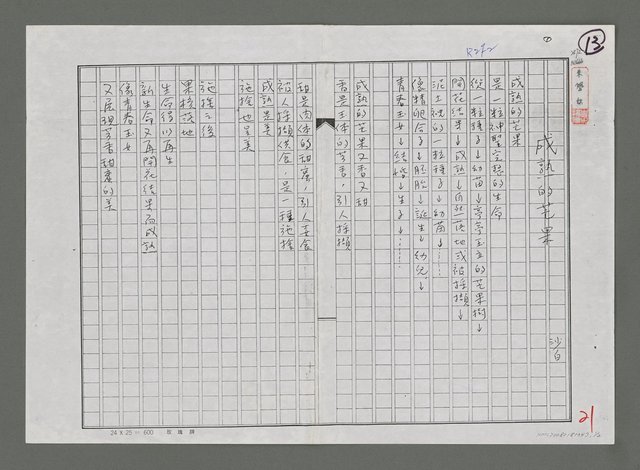 13
R2F2
成熟的芒果
沙白
成熟的芒果
是一粒神聖空的生命
從一粒種子↓幼苗↓亭亭玉立的芒果樹↓
開花結果↓成熟↓自然落地或被採擷↓
泥土裡的一粒種子↓幼苗↓……
像精卵合子↓胚胎↓誕生↓幼兒↓
青春玉女↓結婚↓生子↓……
成熟的芒果又香又甜
香是玉体的芳香，引人採擷
甜是肉体的甜蜜，引人去食
被人採擷供食，是一種施捨
成熟是美
施捨也是美
施捨之後
果核落地
生命得以再生
新生命又再開花結果而成熟
像青春玉女
又展現芳香甜蜜的美
21
24 x 25 = 600
玫瑰牌